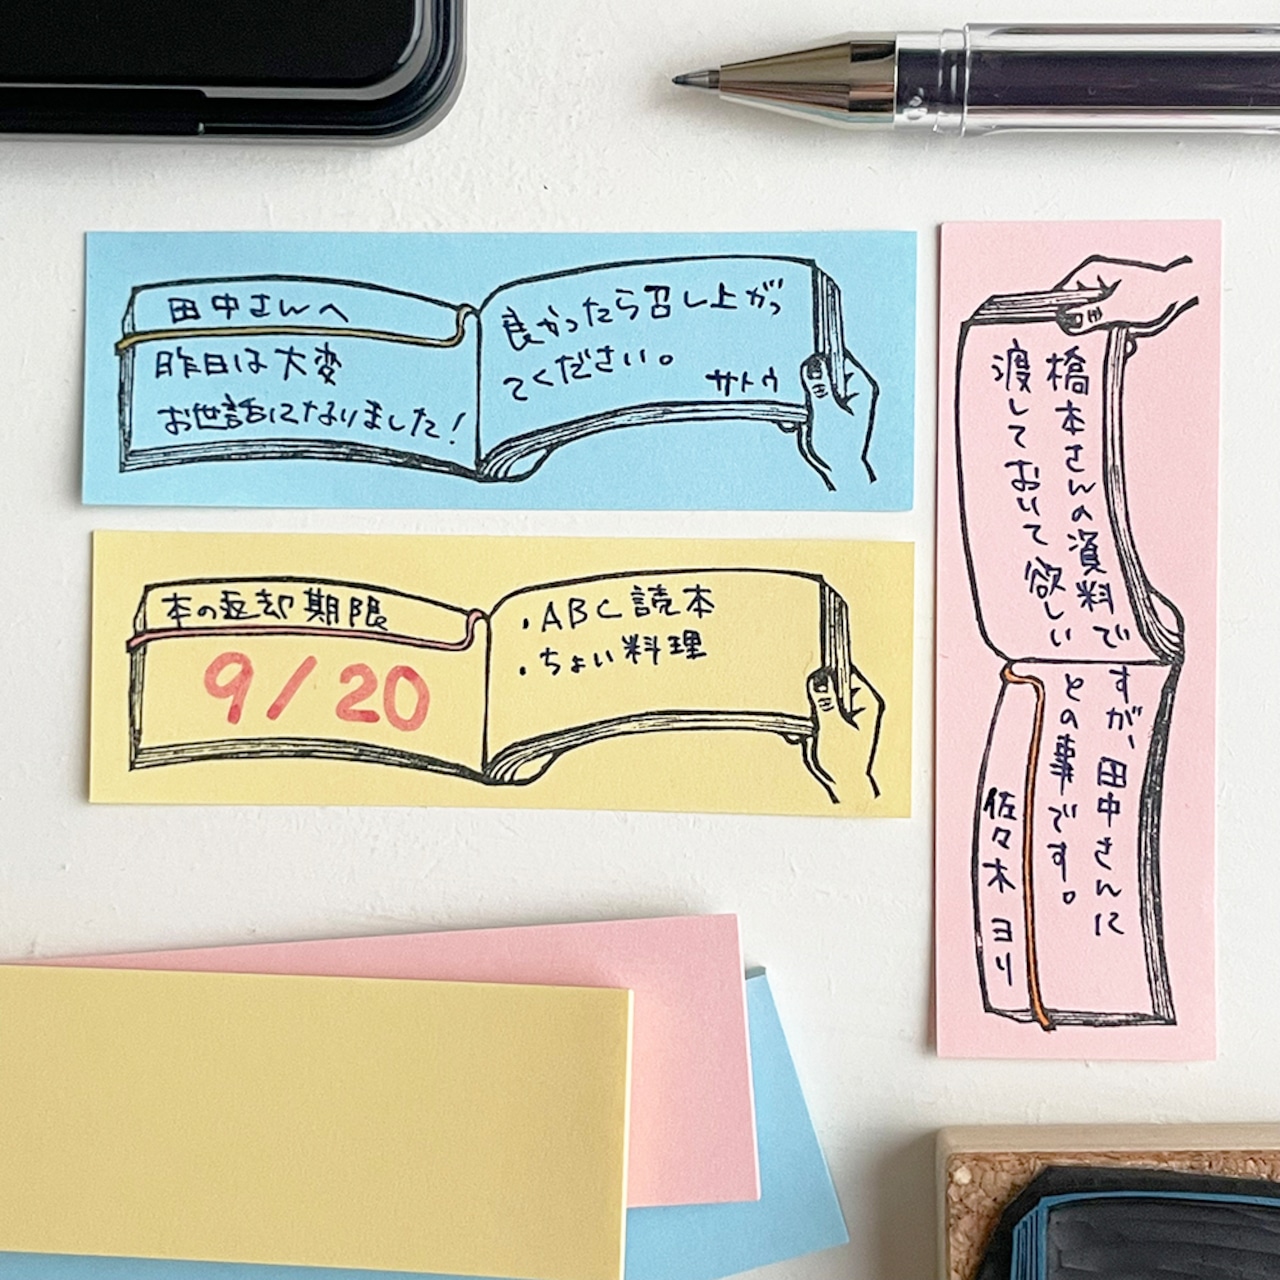 田中さんへ
昨日は大変
お世話になりました!
良かったら召し上がっ
てください。
サトウ
本の返却期限
9/20
・ABC読本
・ちょい料理
橋本さんの資料で
すが、田中さんに
渡しておいて欲しい
との事です。
佐々木ヨリ